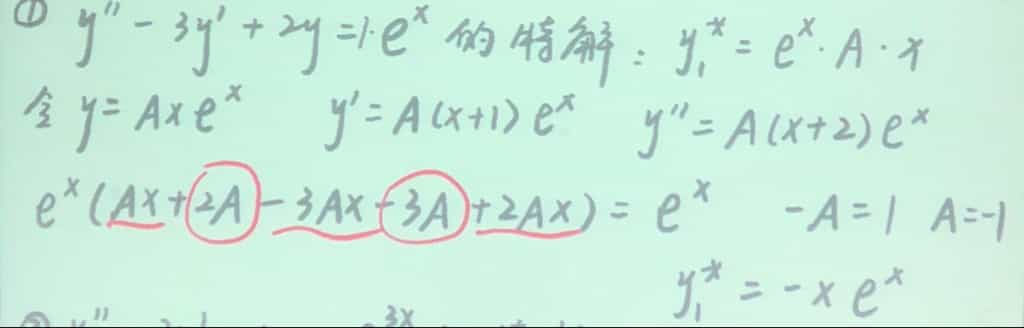 ① y'' - 3y' + 2y = 1·eˣ 的特解: y₁* = eˣ·A·x
令 y = Axeˣ y' = A(x+1)eˣ y'' = A(x+2)eˣ
eˣ(Ax+2A-3Ax-3A+2Ax) = eˣ -A=1 A=-1
y₁* = -xeˣ